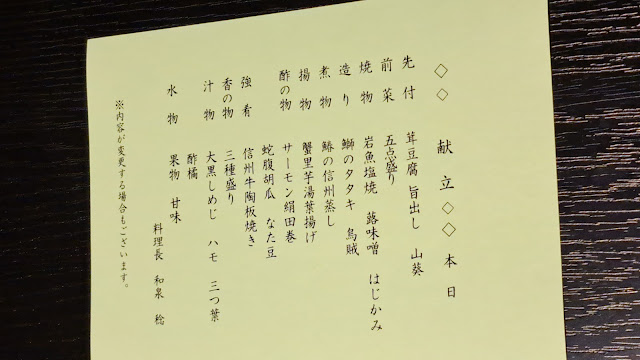 ◇◇ 献立 ◇◇ 本日
先付 茸豆腐 旨出し 山葵
前菜 五点盛り
焼物 岩魚塩焼 蕗味噌 はじかみ
造り 鰤のタタキ 烏賊
煮物 鰆の信州蒸し
揚物 蟹里芋湯葉揚げ
酢の物 サーモン絹田巻
蛇腹胡瓜 なた豆
強肴 信州牛陶板焼き
香の物 三種盛り
汁物 大黒しめじ ハモ 三つ葉
酢橘
水物 果物 甘味
料理長 和泉 稔
※内容が変更する場合もございます。